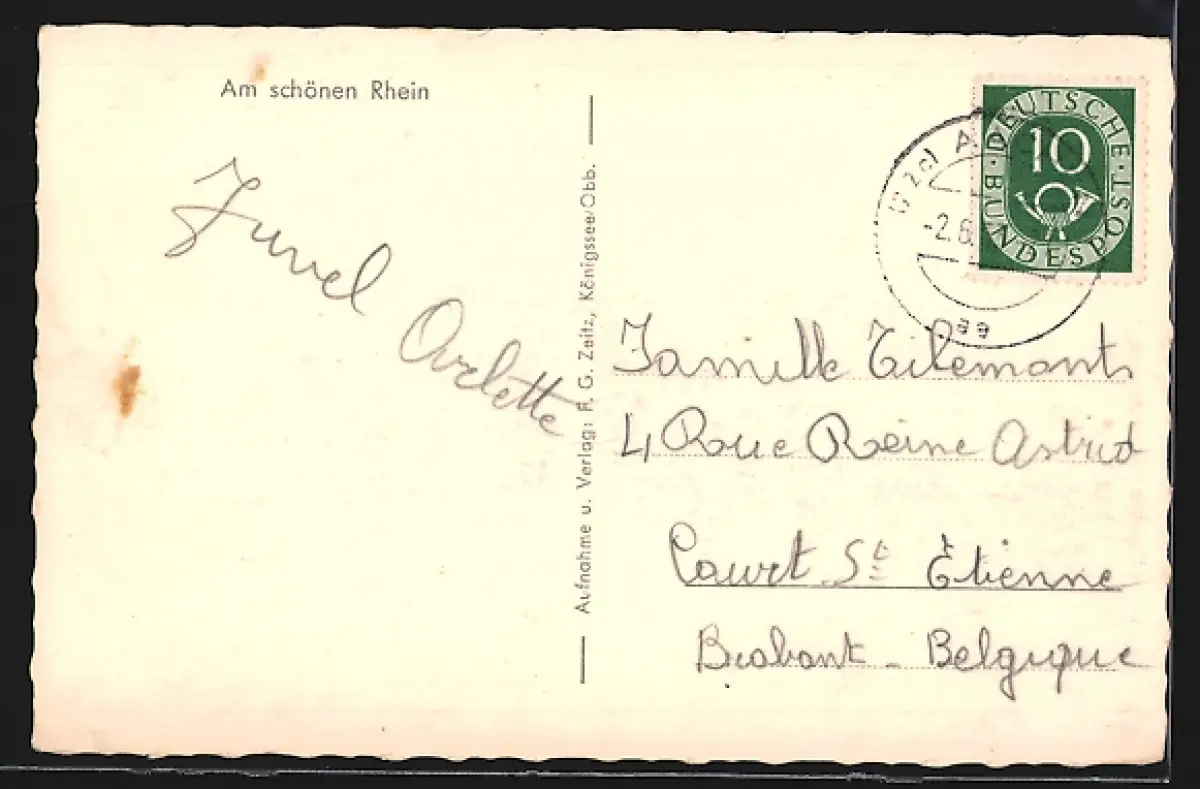 Am schönen Rhein
Aufnahme u. Verlag: F. G. Zeitz, Königssee/Obb.
DEUTSCHE
10
BUNDESPOST
-2.6.
aa
Arlette
Famille Tilemants
4 Rue Reine Astrid
Court St Etienne
Brabant - Belgique